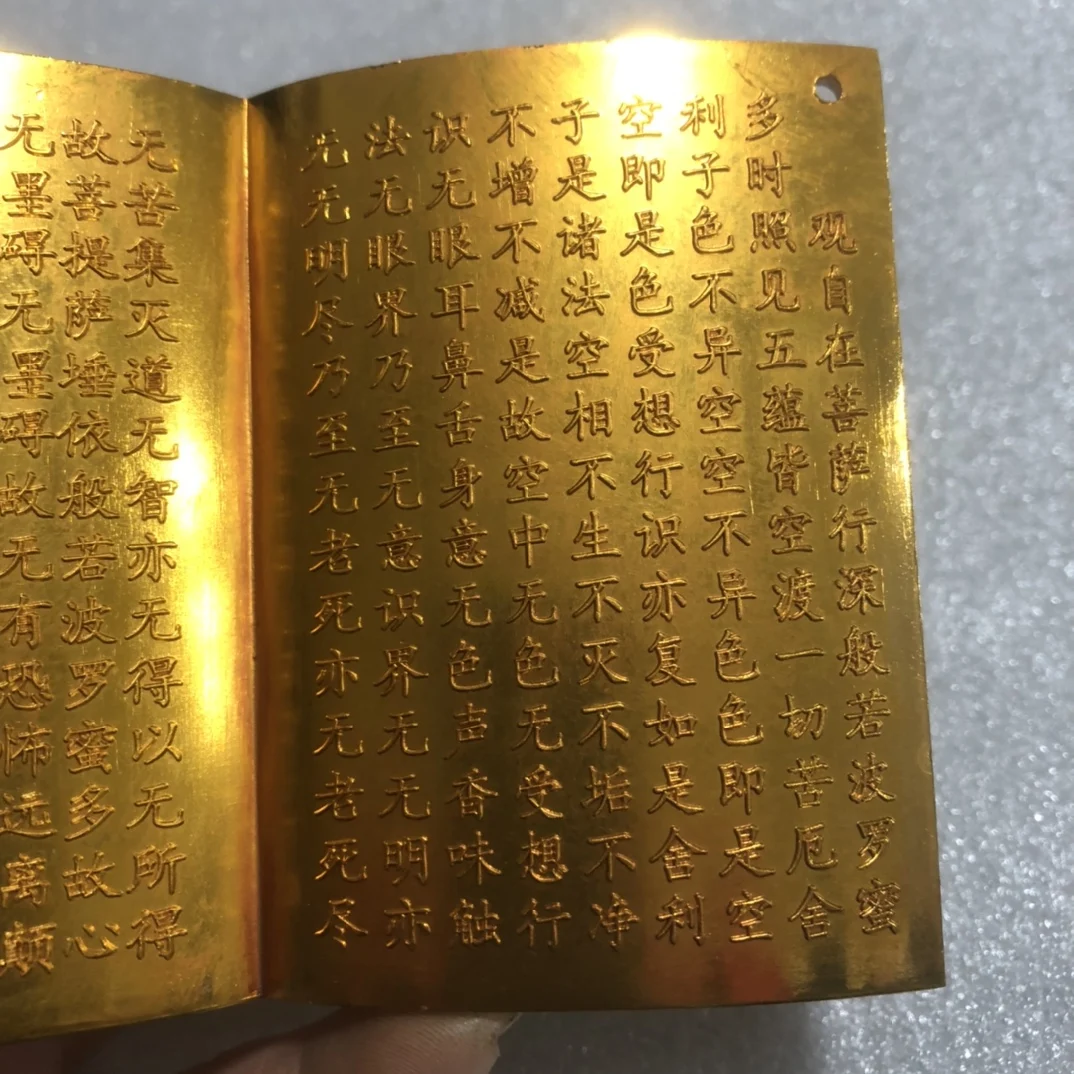 观自在菩萨行深般若波罗蜜
多时照见五蕴皆空渡一切苦厄舍
利子色不异空空不异色色即是空
空即是色受想行识亦复如是舍利
子是诸法空相不生不灭不垢不净
不增不减是故空中无色无受想行
识无眼耳鼻舌身意无色声香味触
法无眼界乃至无意识界无无明亦
无无明尽乃至无老死亦无老死尽
无苦集灭道无智亦无得以无所得
故菩提萨埵依般若波罗蜜多故心
无罣碍无罣碍故无有恐怖远离颠